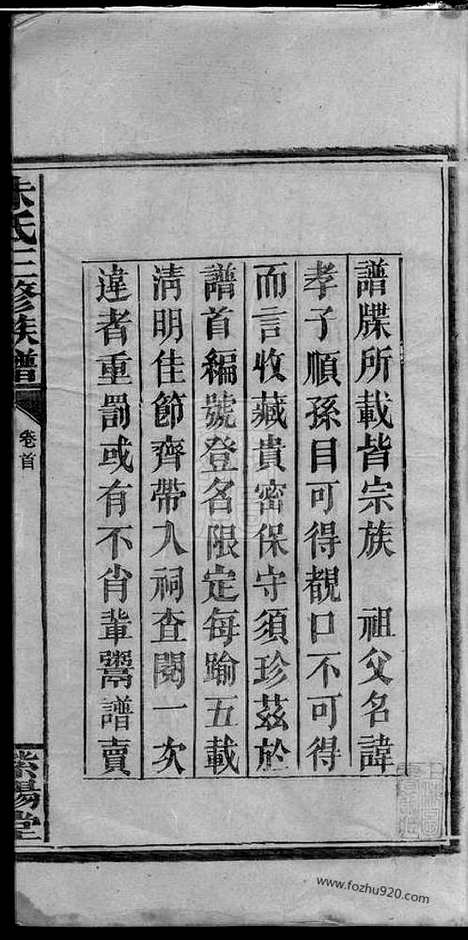 譜牒所載皆宗族　祖父名諱
孝子順孫目可得覩口不可得
而言收藏貴密保守須珍茲於
譜首編號登名限定每踰五載
淸明佳節齊帶入祠查閱一次
違者重罰或有不肖輩鬻譜賣
朱氏三修族譜
卷首
紫陽堂
www.fozhu920.com